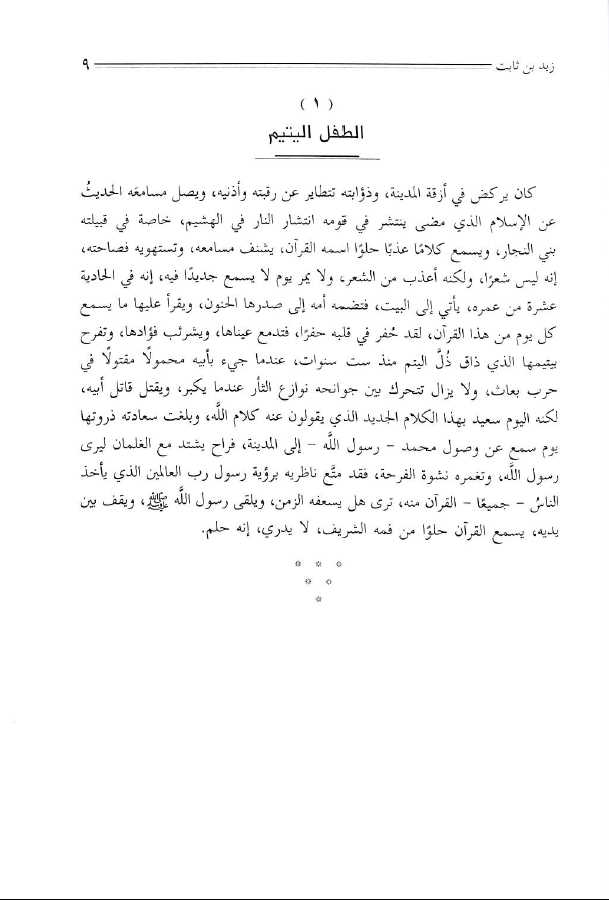 زيد بن ثابت ٩
( ١ )
الطفل اليتيم
كان يركض في أزقة المدينة، وذؤابته تتطاير عن رقبته وأذنيه، ويصل مسامعَه الحديثُ
عن الإسلام الذي مضى ينتشر في قومه انتشار النار في الهشيم، خاصة في قبيلته
بني النجار، ويسمع كلامًا عذبًا حلوًا اسمه القرآن، يشنف مسامعه، وتستهويه فصاحته،
إنه ليس شعرًا، ولكنه أعذب من الشعر، ولا يمر يوم لا يسمع جديدًا فيه، إنه في الحادية
عشرة من عمره، يأتي إلى البيت، فتضمه أمه إلى صدرها الحنون، ويقرأ عليها ما يسمع
كل يوم من هذا القرآن، لقد حُفر في قلبه حفرًا، فتدمع عيناها، ويشرئب فؤادها، وتفرح
بيتيمها الذي ذاق ذُلَّ اليتم منذ ست سنوات، عندما جيء بأبيه محمولًا مقتولًا في
حرب بعاث، ولا يزال تتحرك بين جوانحه نوازع الثأر عندما يكبر، ويقتل قاتل أبيه،
لكنه اليوم سعيد بهذا الكلام الجديد الذي يقولون عنه كلام اللَّه، وبلغت سعادته ذروتها
يوم سمع عن وصول محمد - رسول اللَّه - إلى المدينة، فراح يشتد مع الغلمان ليرى
رسول اللَّه، وتغمره نشوة الفرحة، فقد متَّع ناظريه برؤية رسول رب العالمين الذي يأخذ
الناسُ - جميعًا - القرآن منه، ترى هل يسعفه الزمن، ويلقى رسول اللَّه ﷺ، ويقف بين
يديه، يسمع القرآن حلوًا من فمه الشريف، لا يدري، إنه حلم.